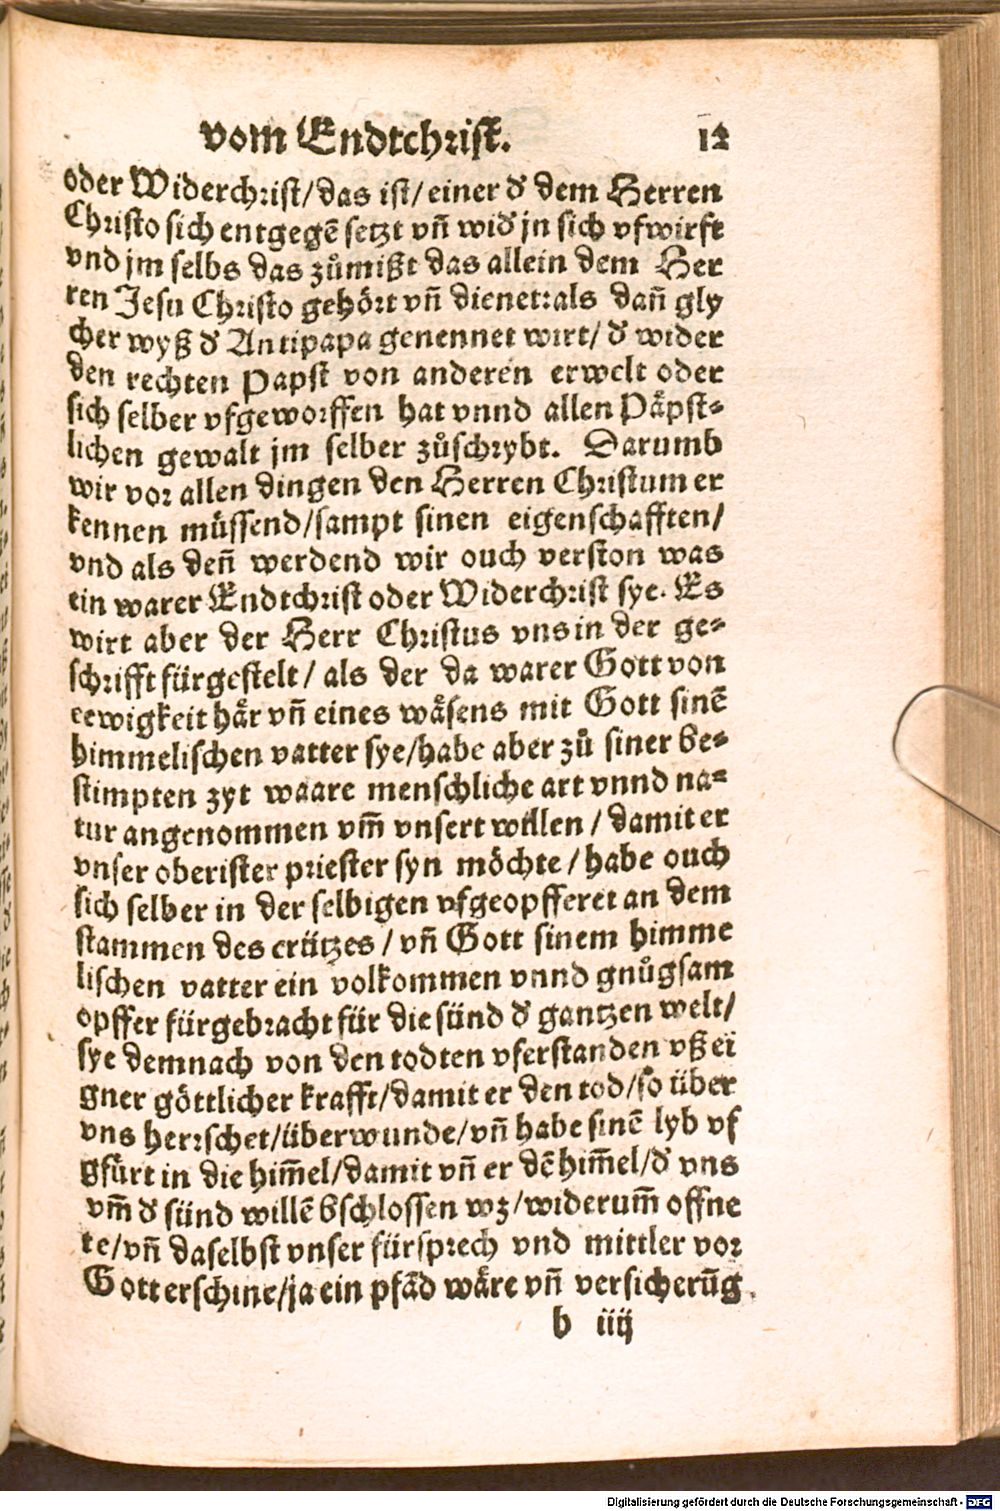 vom Endtchrist. 12
oder Widerchrist/das ist/einer đ dem Herren
Christo sich entgegẽ setzt vñ wiđ jn sich vfwirft
vnd jm selbs das zůmißt das allein dem Her
ren Jesu Christo gehört vñ dienet:als dañ gly
cher wyß đ Antipapa genennet wirt/ đ wider
den rechten Papst von anderen erwelt oder
sich selber vfgeworffen hat vnnd allen Päpst⸗
lichen gewalt jm selber zůschrybt. Darumb
wir vor allen dingen den Herren Christum er
kennen müssend/sampt sinen eigenschafften/
vnd als deñ werdend wir ouch verston was
ein warer Endtchrist oder Widerchrist sye. Es
wirt aber der Herr Christus vns in der ge⸗
schrifft fürgestelt/ als der da warer Gott von
eewigkeit här vñ eines wäsens mit Gott sinẽ
himmelischen vatter sye/habe aber zů siner be⸗
stimpten zyt waare menschliche art vnnd na⸗
tur angenommen vm̃ vnsert willen/ damit er
vnser oberister priester syn möchte/ habe ouch
sich selber in der selbigen vfgeopfferet an dem
stammen des crützes/ vñ Gott sinem himme
lischen vatter ein volkommen vnnd gnůgsam
opffer fürgebracht für die sünd đ gantzen welt/
sye demnach von den todten vferstanden vß ei
gner göttlicher krafft/damit er den tod/so über
vns herrschet/überwunde/vñ habe sinẽ lyb vf
gfürt in die him̃el/damit vñ er dẽ him̃el/đ vns
vm̃ đ sünd willẽ bschlossen wz/widerum̃ offne
te/vñ daselbst vnser fürsprech vnd mittler vor
Gott erschine/ja ein pfãd wäre vñ versicherũg
b iiij
Digitalisierung gefördert durch die Deutsche Forschungsgemeinschaft - DFG